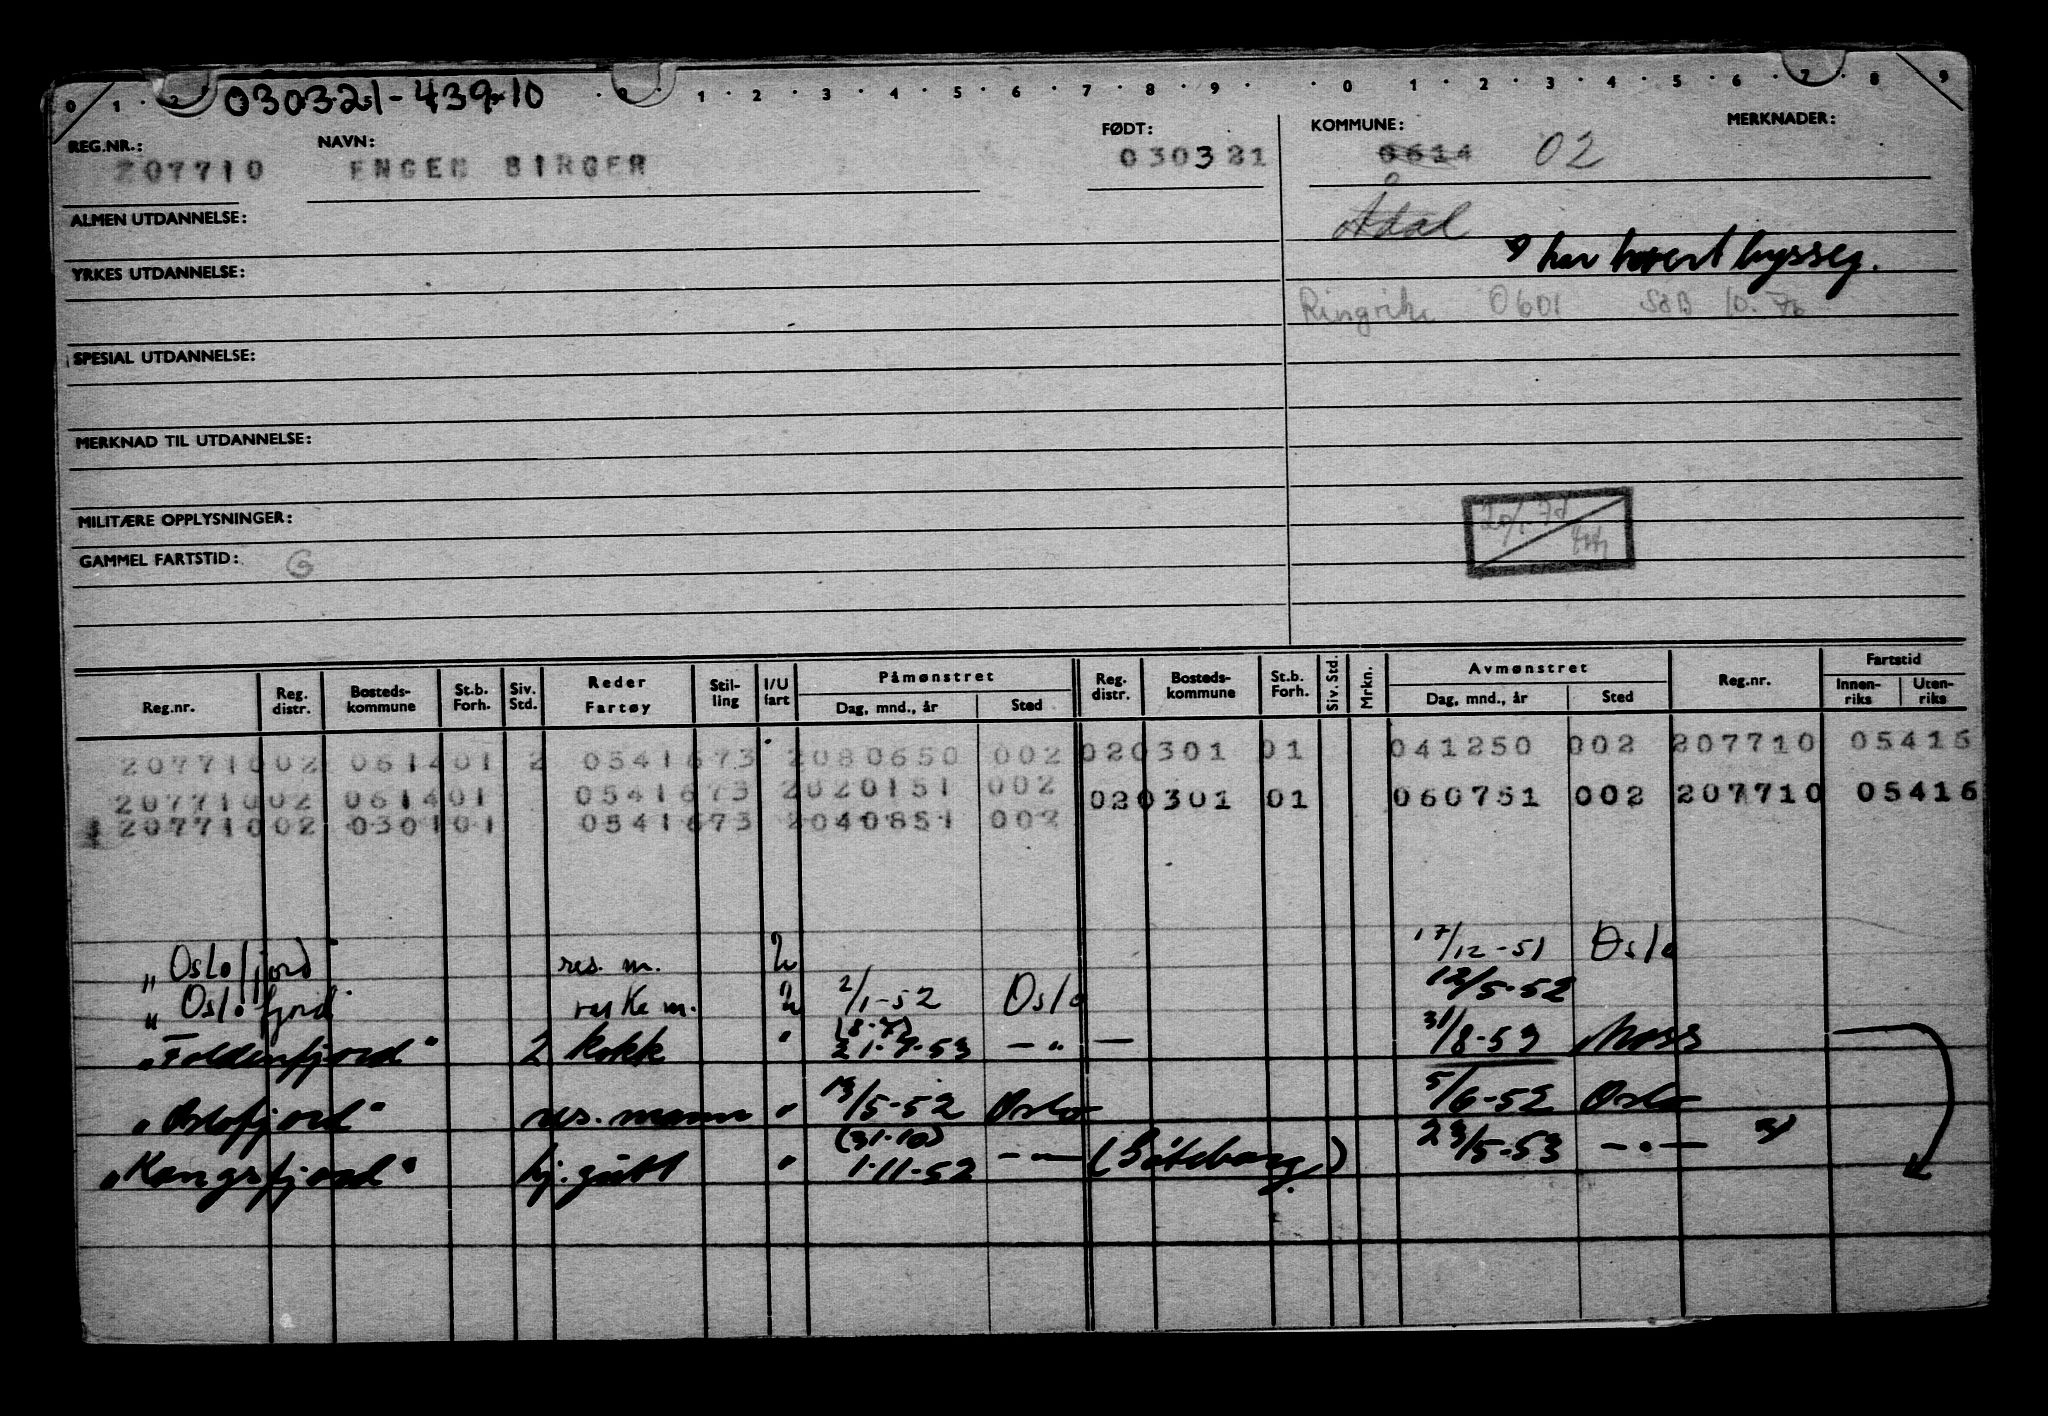 0 1 . 2 030321-439-10 . 0 . 1 . 2 . 3 . 4 . 5 . 6 . 7 . 8 . 9 . . 0 . 1 . 2 . 3 . 4 . 5 . 6 . 7 . 8 . 9
REG.NR.: NAVN: FØDT: KOMMUNE: MERKNADER:
207710 ENGEN BIRGER 030321 0614 02
ALMEN UTDANNELSE: Ådal
YRKES UTDANNELSE: har hysseg.
Ringrike 0601 SOB 10.76
SPESIAL UTDANNELSE:
MERKNAD TIL UTDANNELSE:
MILITÆRE OPPLYSNINGER:
GAMMEL FARTSTID: G
Reg.nr. Reg. distr. Bosteds- kommune St.b. Forh. Siv. Std. Reder Fartøy Stil- ling I/U fart Påmønstret Dag, mnd., år Sted Reg. distr. Bosteds- kommune St.b. Forh. Siv. Std. Mrkn. Avmønstret Dag, mnd., år Sted Reg.nr. Fartstid Innen- riks Uten- riks
207710 02 0614 01 2 0541673 2 080650 002 02 0301 01 041250 002 207710 05416
207710 02 0614 01 0541673 2 020151 002 02 0301 01 060751 002 207710 05416
207710 02 0301 01 0541673 2 040851 002
" Oslofjord res. m. 17/12-51 Oslo
" Oslofjord m. 2/1-52 Oslo 12/5-52
"Foldenfjord" 2 kokk " 21-7-53 - " - 31/8-53 Moss
"Oslofjord" res. mann " 13/5-52 Oslo 5/6-52 Oslo
"Kongsfjord" bj. gutt " (31-10) 1-11-52 - " - (Göteborg) 23/5-53 - " -